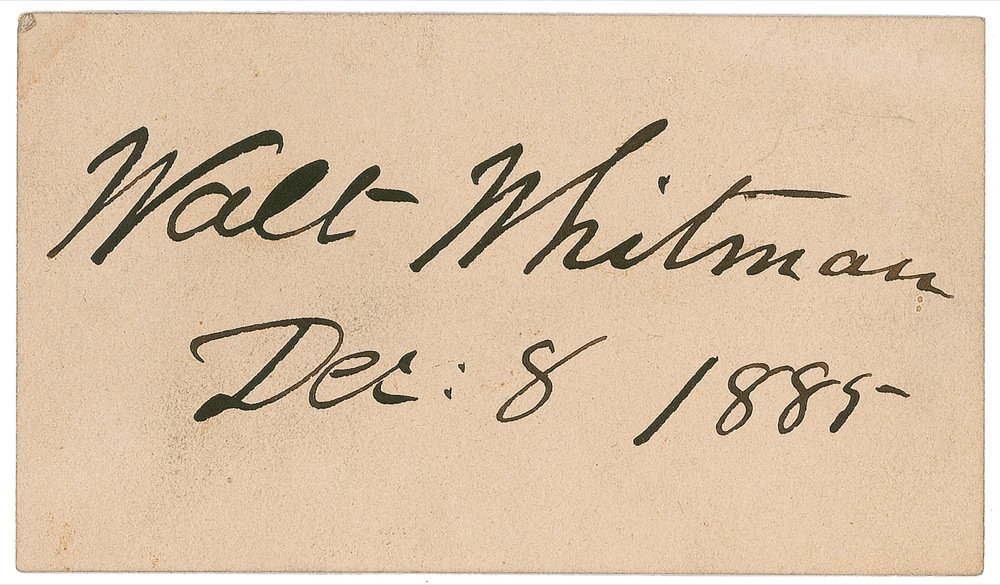 Walt Whitman
Dec: 8 1885